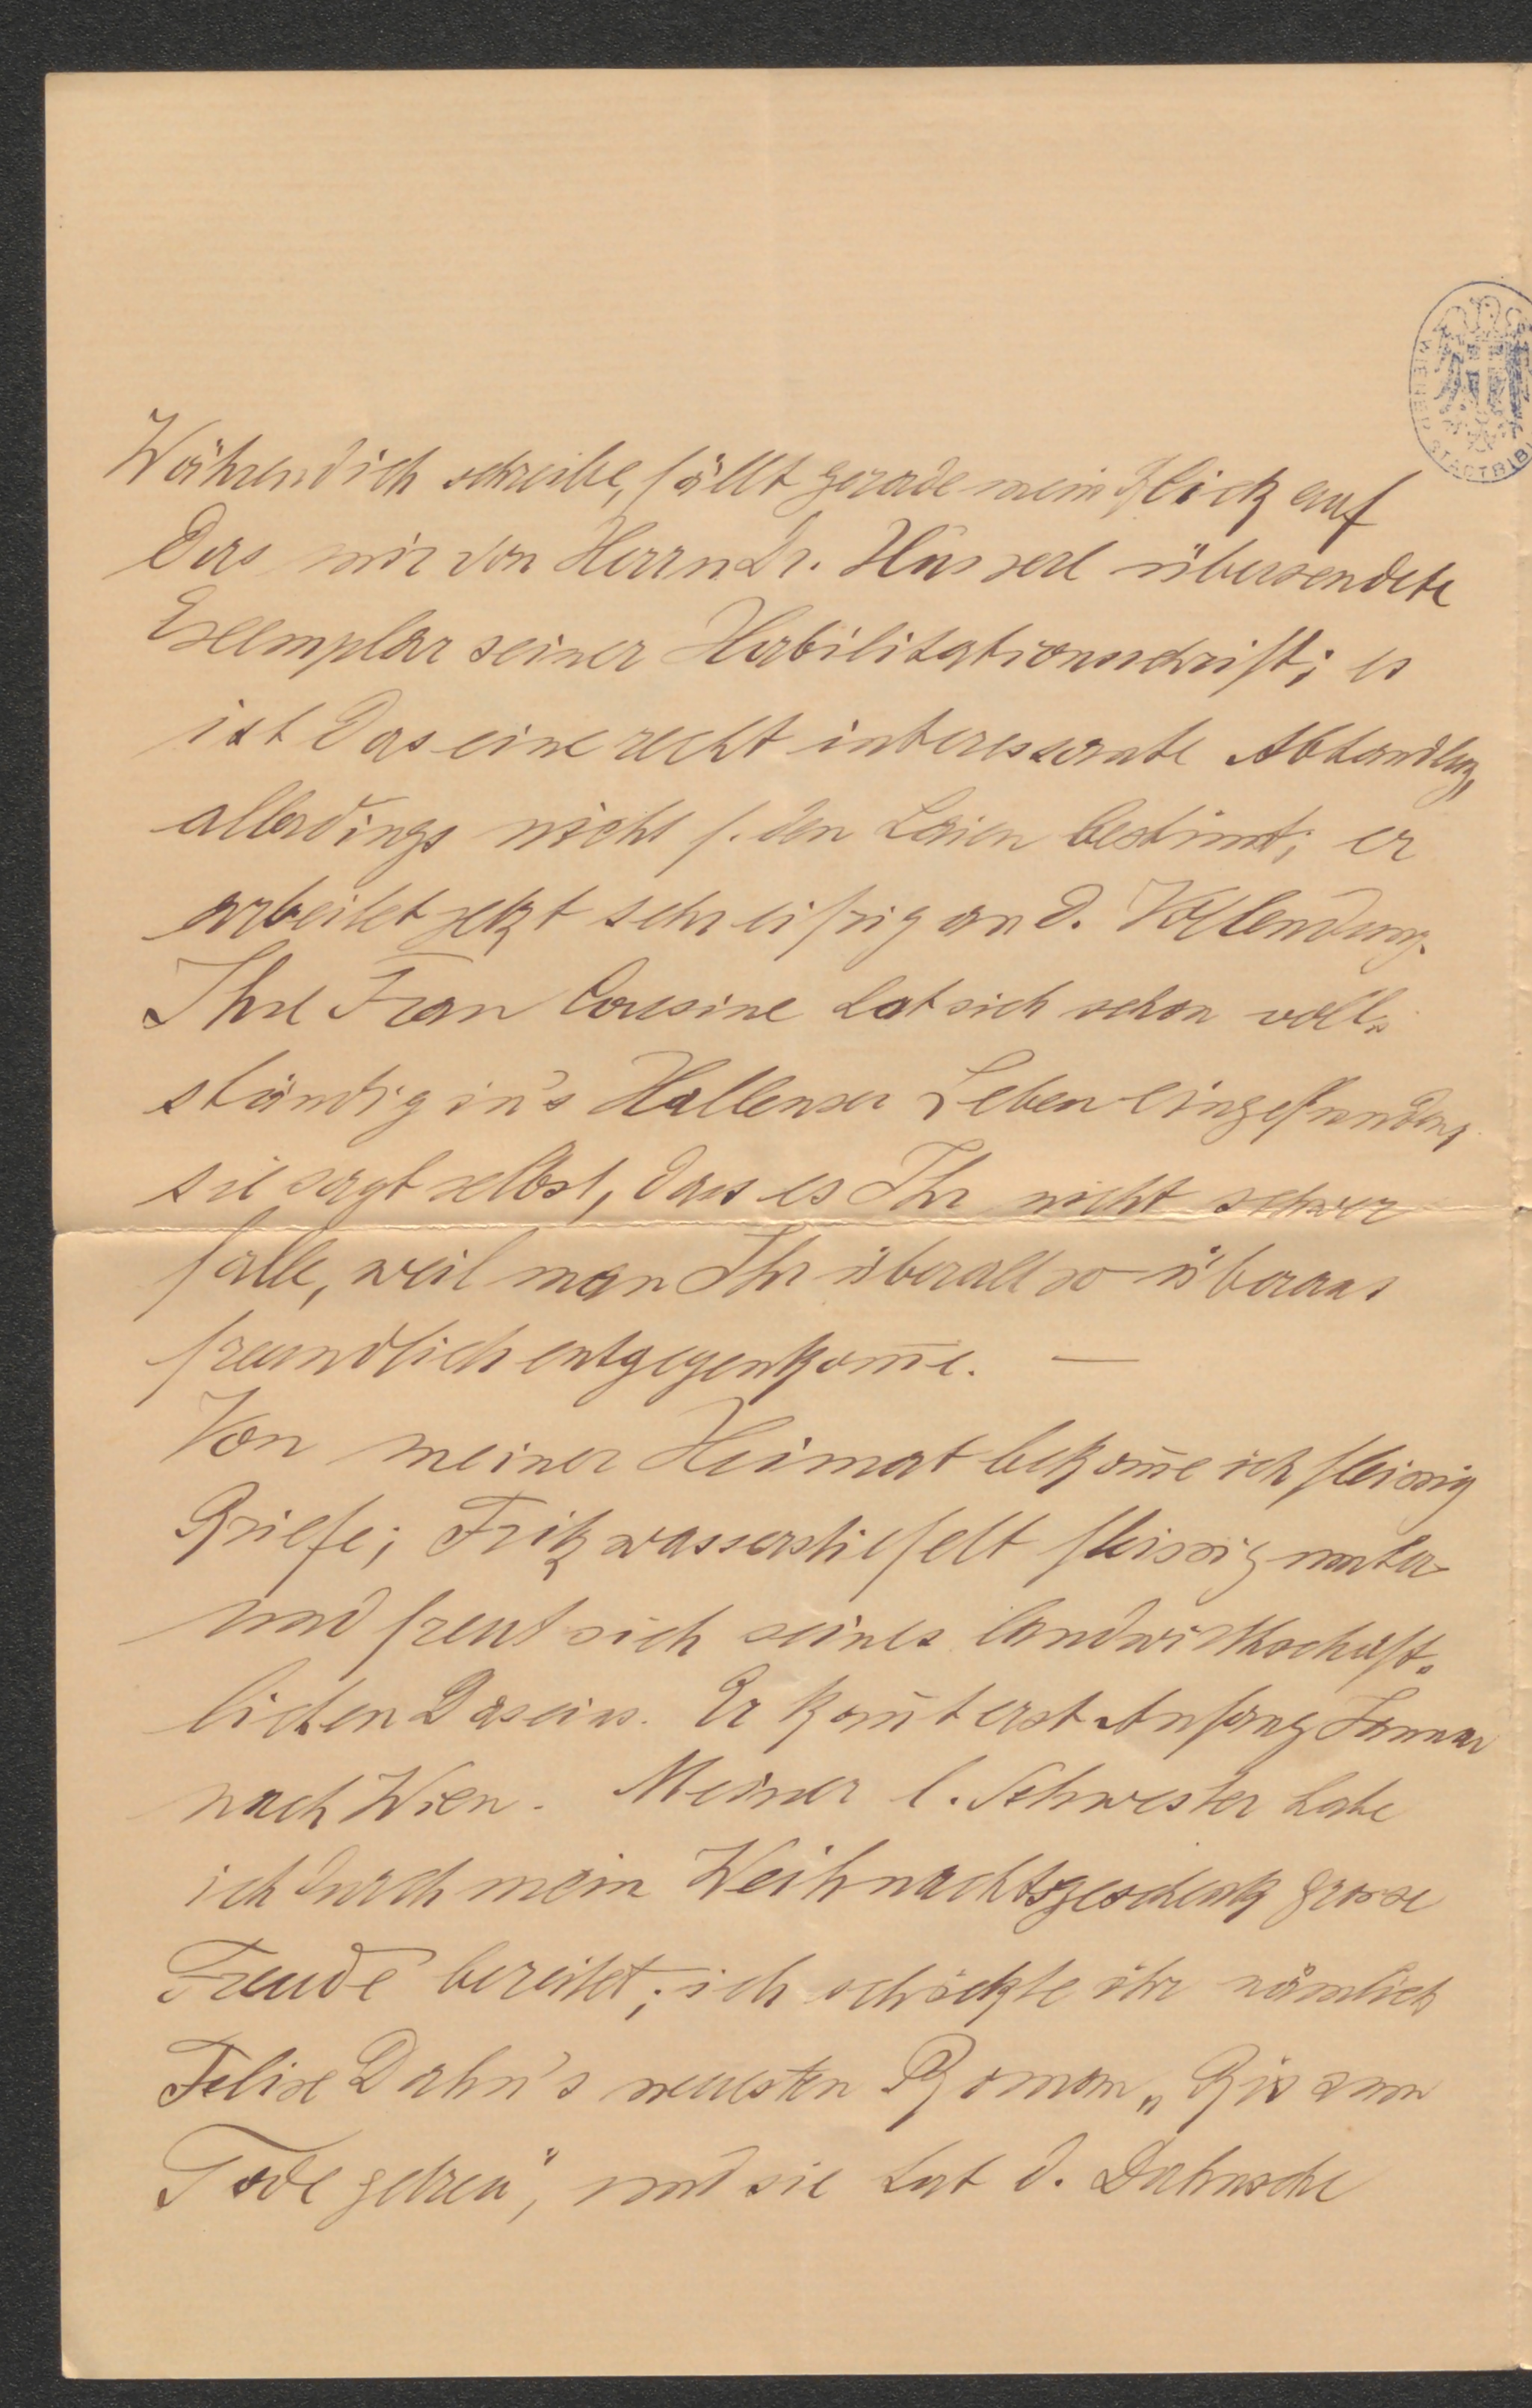 Während ich schreibe, fällt gerade mein Blick auf
das mir von Herrn Dr. Husserl übersendete
Exemplar seiner Habilitationsschrift; es
ist das eine recht interessante Abhandlg,
allerdings nicht f. den Laien bestim̅t; er
arbeitet jetzt sehr eifrig an d. Vollendung.
Ihre Frau Cousine hat sich schon voll-
ständig in's Hallenser Leben eingefunden,
sie sagt selbst, dass es Ihr nicht schwer
falle, weil man Ihr überall so überaus
freundlich entgegenkom̅e. —
Von meiner Heimat bekom̅e ich fleissig
Briefe; Fritz wasserstiefelt fleissig
und freut sich seines landwirthschaft-
lichen Daseins. Er kom̅t erst Anfang Januar
nach Wien. Meiner l. Schwester habe
ich durch mein Weihnachtsgeschenk grosse
Freude bereitet; ich schickte ihr nämlich
Felix Dahn's neuesten Roman „Bis zum
Tode getreu", und sie hat d. Dahnsche
WIENER STADTBIB